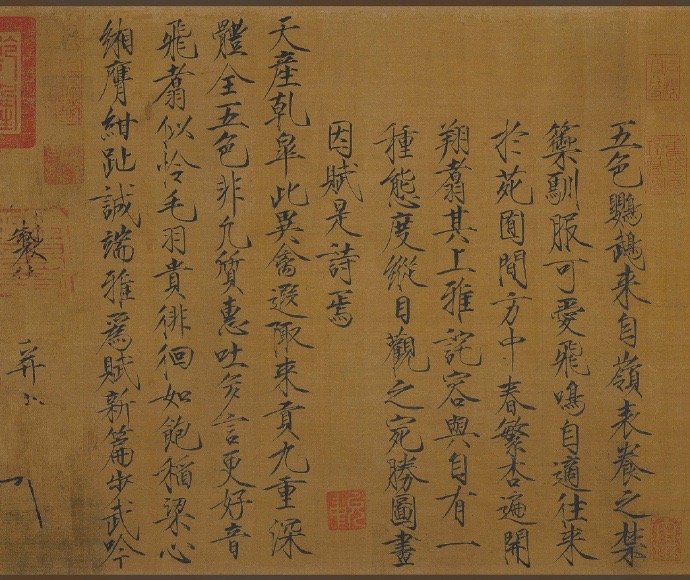 五色鸚鵡来自嶺表養之禁
籞馴服可愛飛鳴自適往来
於苑囿間方中春繁杏遍開
翔翥其上雅詫容與自有一
種態度縱目觀之宛勝圖畫
因賦是詩焉
天産乾皐此異禽遐陬来貢九重深
體全五色非凡質惠吐多言更好音
飛翥似怜毛羽貴徘徊如飽稻粱心
緗膺紺趾誠端雅爲賦新篇步武吟
製
并